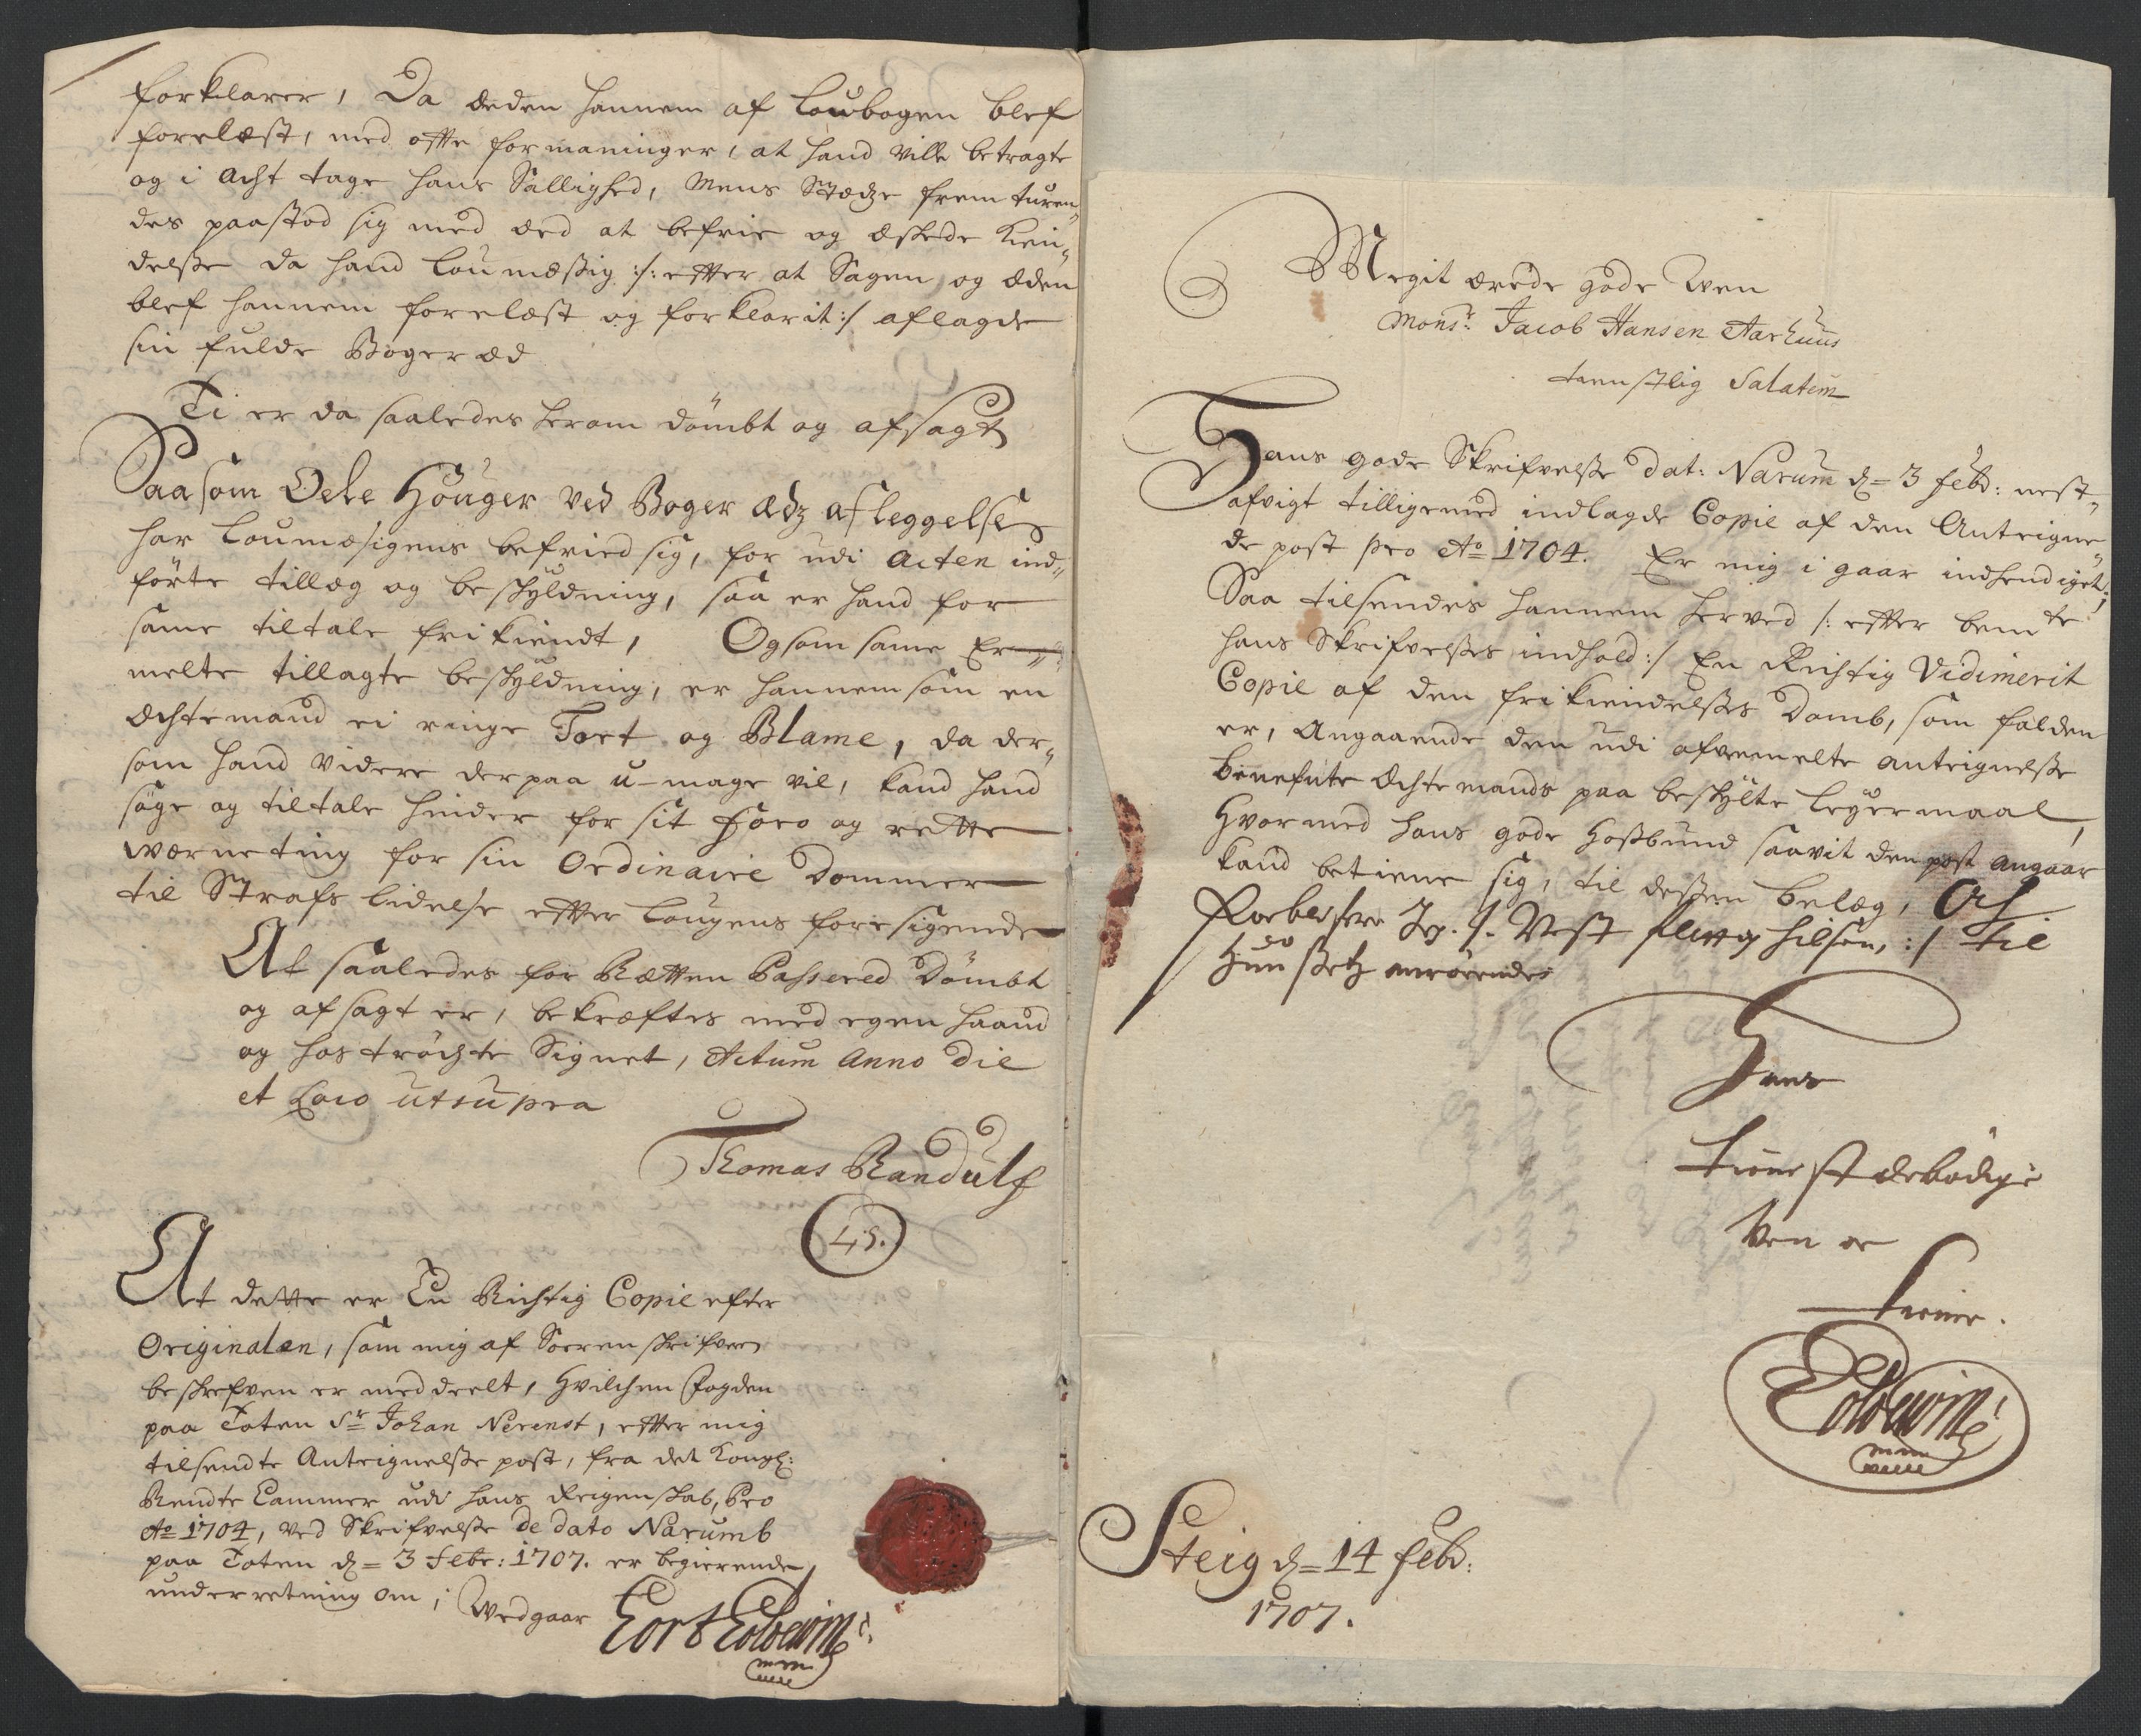 forklarer, Da æeden hannem af Loubogen blef
forelæst, med ofte formaninger, at hand ville betragte
og i acht tage hans Sallighed, Mens Stædze frem turen„
des paastod sig med æed at befrie og æskede Kien„
delsse da hand Loumæssig :/: efter at Sagen og Æden
blef hannem forelæst og forklarit :/ aflagde
sin fulde Boger æd
Ti er da saaledes herom dömbt og afsagt
Saasom Oele Höuger ved Boger Ædz afleggelse
har Loumæsigens befried sig, for udi Acten ind„
förte tillæg og beskyldning, saa er hand for
same tiltale frikiendt, Og som same Er„
melte tillagte beskyldning, er hannem som en
Ächtemand ei ringe Tort og Blame, da der„
som hand videre derpaa u-mage vil, kand hand
söge og tiltale hinder for sit foro og rette
værneting for sin Ordinaire Dommer
til Strafs lidelse efter Lougens foresigende
At saaledes for Rætten Passered Dömbt
og afsagt er, bekræftes med egen haand
og hoströchte Signet, Actum Anno Die
et Loco utsupra
Thomas Randulf
L.S.
At dette er En Richtig Copie efter
Originalen, som mig af Sorenskrifveren
beskrefven er meddeelt, hvilchen Fogden
paa Toten Sr Johan Nerenst, efter mig
tilsendte Anteignelsse post, fra det Kongl:
Rendte Cammer udi hans Reigenskab, Pro
Ao 1704, ved Skrifvelsse de dato Narumb
paa Toten d= 3 Febr: 1707. er begierende
underretning om, Vedgaar
Cort Coldevin
mpp
Megit ærede gode Ven
Monsr: Jacob Hansen Aarhuus
tienstlig Salutem
Hans gode Skrifvelsse dat: Narum d= 3 feb: nest„
afvigt tilligemed indlagde Copie af den Anteigne„
de post pro Ao 1704. Er mig i gaar indhendiget,
Saa tilsendes hannem herved /: efter bemte
hans Skrifvelsses indhold :/ En Richtig Vidimerit
Copie af den frikiendelsses Domb, som falden
er, Angaaende den udi ofvenmelte anteignelsse
benefnte Ächtemands paa beskylte Leyermaal,
Hvormed hans gode Hossbund saavit den post angaar
kand betiene sig, til dessen belæg,
til
Hans
tienst
Ven oc
tiener.
Coldevin
mpp
Steig d= 14 feb:
1707.